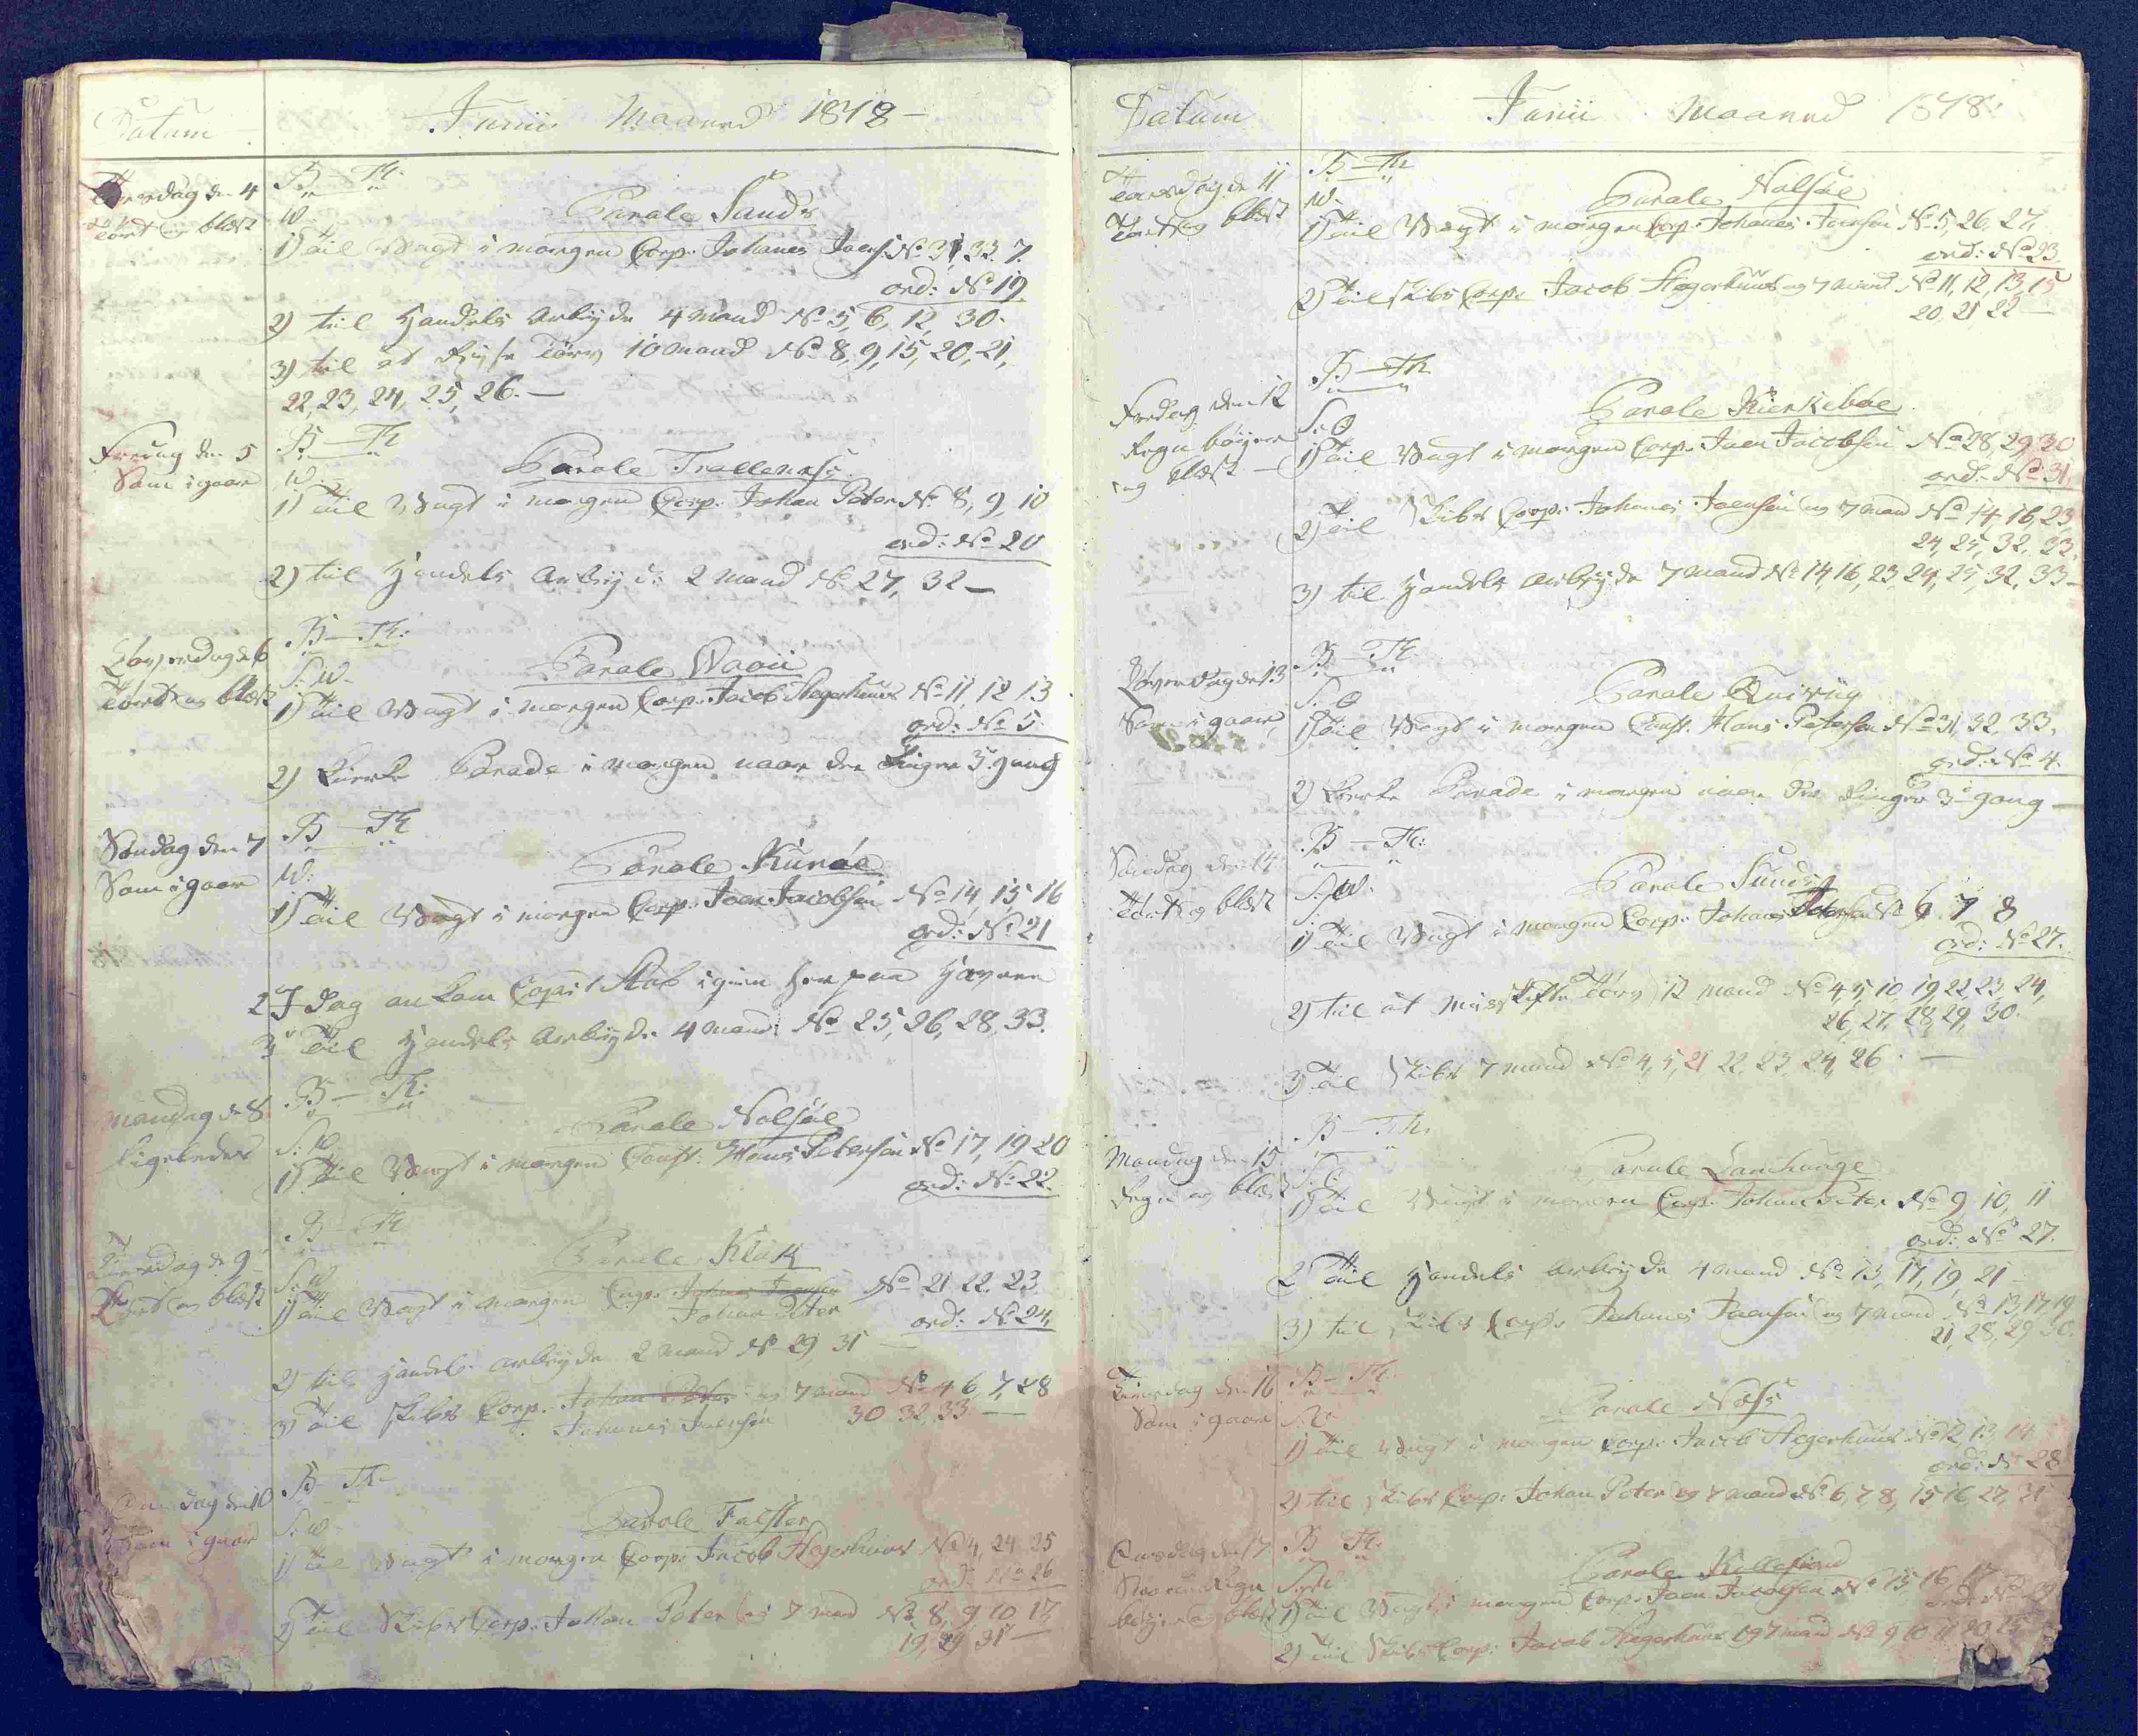 Datum
Junii Maaned 1818 –
Torsdag den 4
Tørt og blæst
B – Th:
W.
Parole Sands
1) Til Vagt i morgen Corp: Johanes Joens: No 31, 33. 7.
ord: No 19
2) til Handels Arbeyde 4 Mand No 5, 6, 12, 30.
3) til at Røgte Tørv 10 Mand No 8, 9, 15, 20, 21,
22, 23, 24, 25, 26. –
Fredag den 5
Som i gaar
B – Th
W.
Parole Trællenæs
1) Til Vagt i morgen Corp: Johan Peter No 8, 9, 10
ord: No 20
2) til Handels Arbeyde 2 Mand No 27, 32 –
Løverdag d: 6
Tørt og blæst
B – Th:
S: W.
Parole Waaii
1) Til Vagt i morgen Corp: Jacob Hegerhuus No 11, 12 13
ord: No 5
2) Kierke Parade i morgen naar der Ringer 3: gang
Søndag den 7
Som i gaar
B – Th
W:
Parole Kunøe
1) Til Vagt i morgen Corp: Joen Jacobsen No 14 15 16
ord: No 21
2 I Dag an kom igien her paa Havnen
3 Til Handels Arbeyde 4 Mand No 25, 26, 28, 33.
Mandag d: 8
Ligeledes
B – Th:
S: W
Parole Nolsøe
1) Til Vagt i morgen Const: Hans Petersen No 17, 19 20
ord: No 22.
Tiirsdag d: 9
Tørt og blæst
B – Th
S: W
Parole Klak
1) Til Vagt i morgen Corp: Johanes Joensen No 21 22. 23
Johan Peter
ord: No 24,
2) til Handels Arbeyde 2 Mand No 29, 31 –
3) Til Skibs Corp: Johan Peter og 7 mand No 4 6, 7, 28
Johanes Joensen 30 32, 33. –
Onsdag den 10
Som i gaar
B – Th
S: W
Parole Falster
1) Til Vagt i morgen Corp: Jacob Hegerhuus No 4, 24 25
ord: No 26
2) Til Skibs Corp: Johan Peter og 7 mand No 8, 9 10 17
19, 29 31 –
Datum
Junii Maaned 1818:
Torsdag d: 11
Tørt og blæst
B – Th
W.
Parole Nolsøe
1) Til Vagt i morgen Corp: Johanes Joensen No 5, 26, 27,
ord: No 23
2) Til Skibs Corp: Jacob Hegerhuus og 7 Mand No 11, 12, 13, 15
20, 21 22 –
Fredag den 12
Regn bøyer
og blæst –
B – Th
S: O
Parole Kierkeboe
1) Til Vagt i morgen Corp: Joen Jacobsen No 28, 29, 30
ord: No 31,
2) Til Skibs Corp: Johanes Joensen og 7 mand No 14, 16, 23,
24, 25, 32, 33.
3) til Handels Arbeyde 7 mand No 14, 16, 23 24, 25, 32, 33 –
Løverdag d: 13
Som i gaar
B – Th
S: O
Parole Quivüg
1) Til Vagt i morgen Const: Hans Petersen No 31, 32, 33,
ord: No 4.
2) Kierke Parade i morgen naar der Ringer 3: gang –
Søndag den 14
Tørt og blæst
B – Th:
S: W:
Parole Sunds
1) Til Vagt i morgen Corp: Johanes No 6 7 8
ord: No 27.
2) til at Tørv 12 Mand No 4, 5, 10, 19, 22, 23, 24,
26, 27, 28, 29, 30.
3) Til Skibs 7 mand No 4, 5, 21 22 23 24, 26 –
Mandag den 15
Regn og blæst
B – Th:
Parole Lamhauge
1) Til Vagt i morgen Corp: Johan Peter No 9, 10, 11
ord: No 27.
2 Til Handels Arbeyde 4 Mand No 13, 17, 19, 21 –
3) til Skibs Corp: Johanes Joensen og 7 mand No 13, 17 19
21, 28, 29 30.
Tiirsdag den 16
Som i gaar
B – Th:
Parole Næss
1) Til Vagt i morgen Corp: Jacob Hegerhuus No 12, 13, 14
ord: No 28
2) til Skibs Corp: Johan Peter og 7 mand No 6, 7, 8, 15 16, 27, 31
Onsdag den 17
Regn
bøyer og blæst
B – Th:
Parole Kollefiord
1) Til Vagt i morgen Corp: Joen Jacobsen No 15 16 17
ord: No
2) Til Skibs Corp: Jacob Hegerhuus og 7 mand No 9 10 11 20,